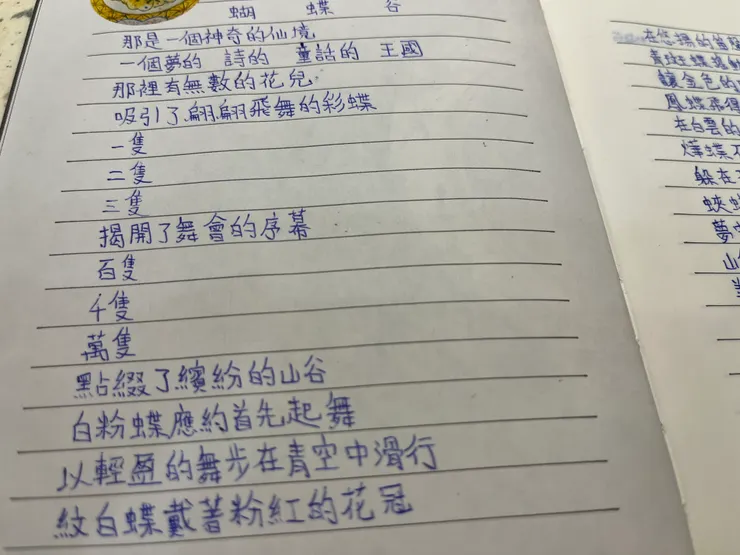 蝴 蝶 谷
那是一個神奇的仙境
一個夢的 詩的 童話的 王國
那裡有無數的花兒
吸引了翩翩飛舞的彩蝶
一隻
二隻
三隻
揭開了舞會的序幕
百隻
千隻
萬隻
點綴了繽紛的山谷
白粉蝶應約首先起舞
以輕盈的舞步在青空中滑行
紋白蝶戴著粉紅的花冠
在悠揚的笛
青斑蝶
鑲金色的
鳳蝶飛得
在白雲的
蝶不
躲在
蛺蝶
夢
山